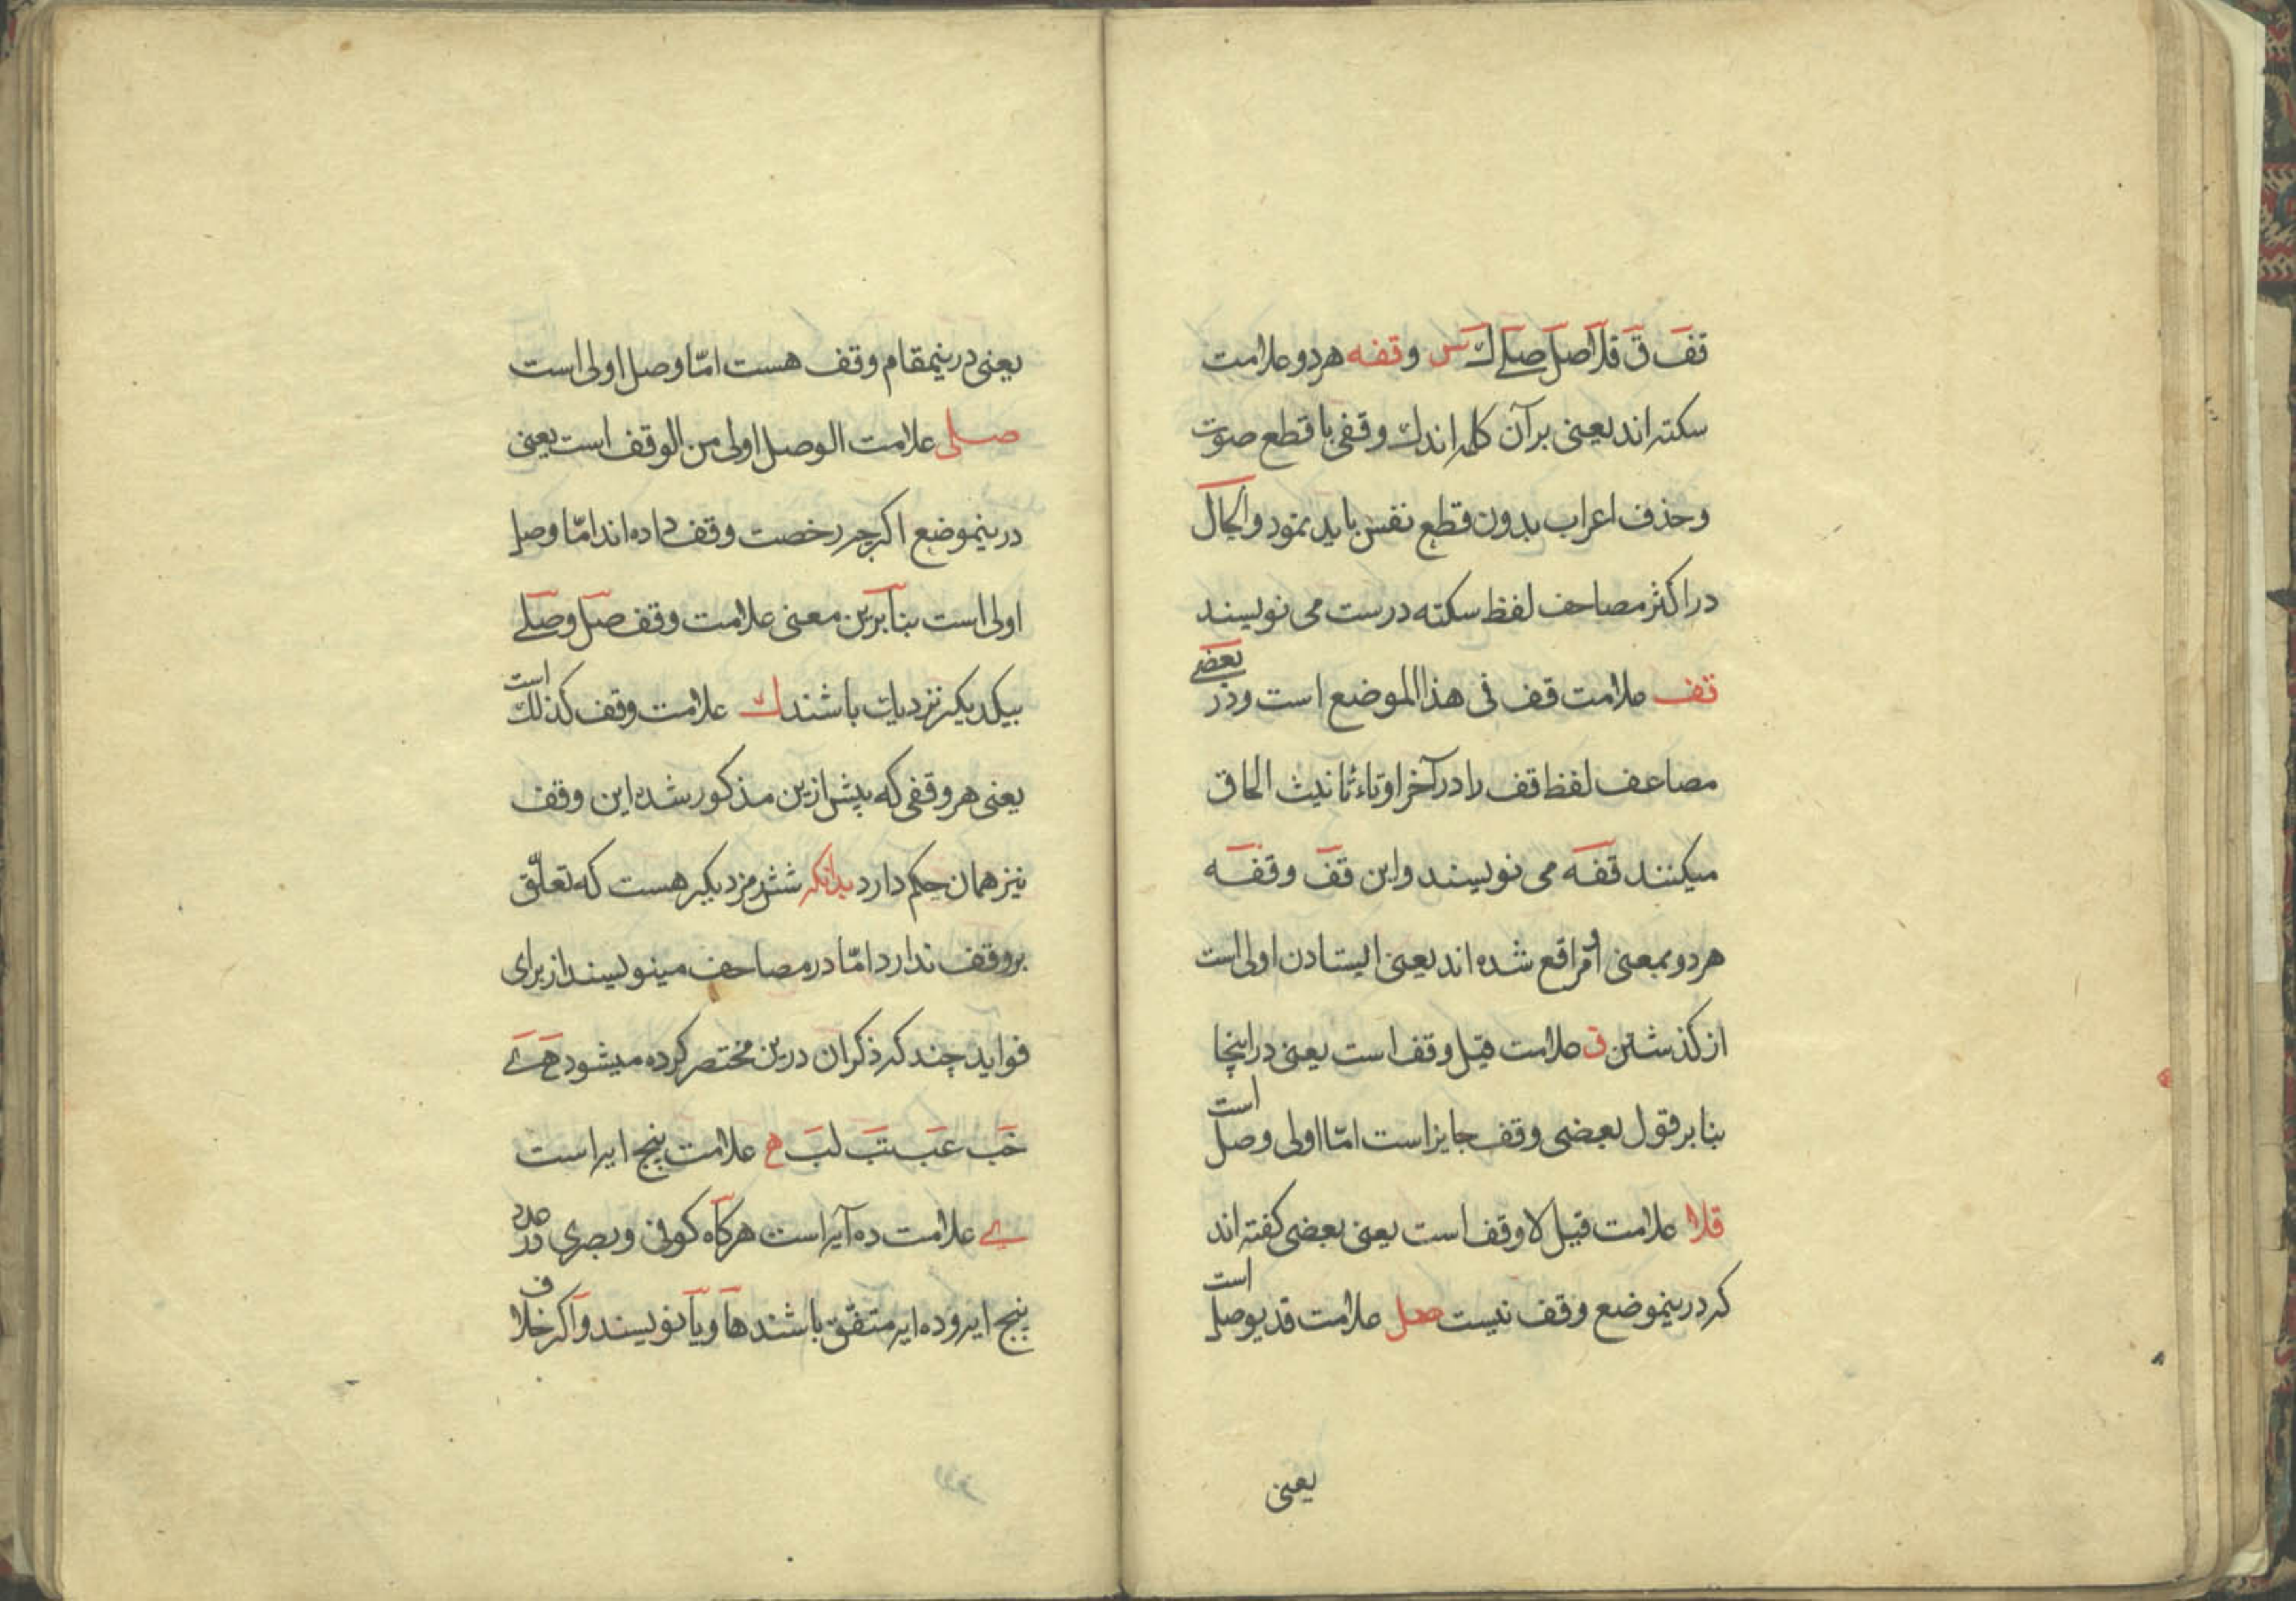 قف ق قلا صل صلے ك س وقفه هردو علامت
سکته اند یعنی بر آن کلمه اندك وقفی با قطع صوت
وحذف اعراب بدون قطع نفس باید نمود والحال
در اکثر مصاحف لفظ سکته درست می نویسند
قف علامت قف فی هذا الموضع است ودر بعضے
مصاعف لفظ قف را در آخر او تاء تانیث الحاق
میکنند قفه می نویسند واین قف وقفه
هردو بمعنی امر واقع شده اند یعنی ایستادن اولی است
از کذشتن ق علامت قیل وقف است یعنی در اینجا
بنا بر قول بعضی وقف جایز است امّا اولی وصل است
قلا علامت قیل لا وقف است یعنی بعضی کفته اند
که درینموضع وقف نیست صل علامت قد یوصل است
یعنی
یعنی درینمقام وقف هست امّا وصل اولی است
صلی علامت الوصل اولی من الوقف است یعنی
درینموضع اکرچه رخصت وقف داده اند امّا وصل
اولی است بنا برین معنی علامت وقف صل وصلے
بیکدیکر نزدیك باشند ك علامت وقف کذلك است
یعنی هر وقفی که پیش ازین مذکور شده این وقف
نیز همان حکم دارد بدانکه شش رمز دیکر هست که تعلّق
بر وقف ندارد امّا در مصاحف مینویسند از برای
فواید چند که ذکر ان درین مختصر کرده میشود ه ے
خب عب تب لب ه علامت پنج ایه است
ے علامت ده آیه است هرکاه کوفی وبصری در عدد
پنج ایه وده ایه متفق باشند ها ویا نویسند واکر خلاف